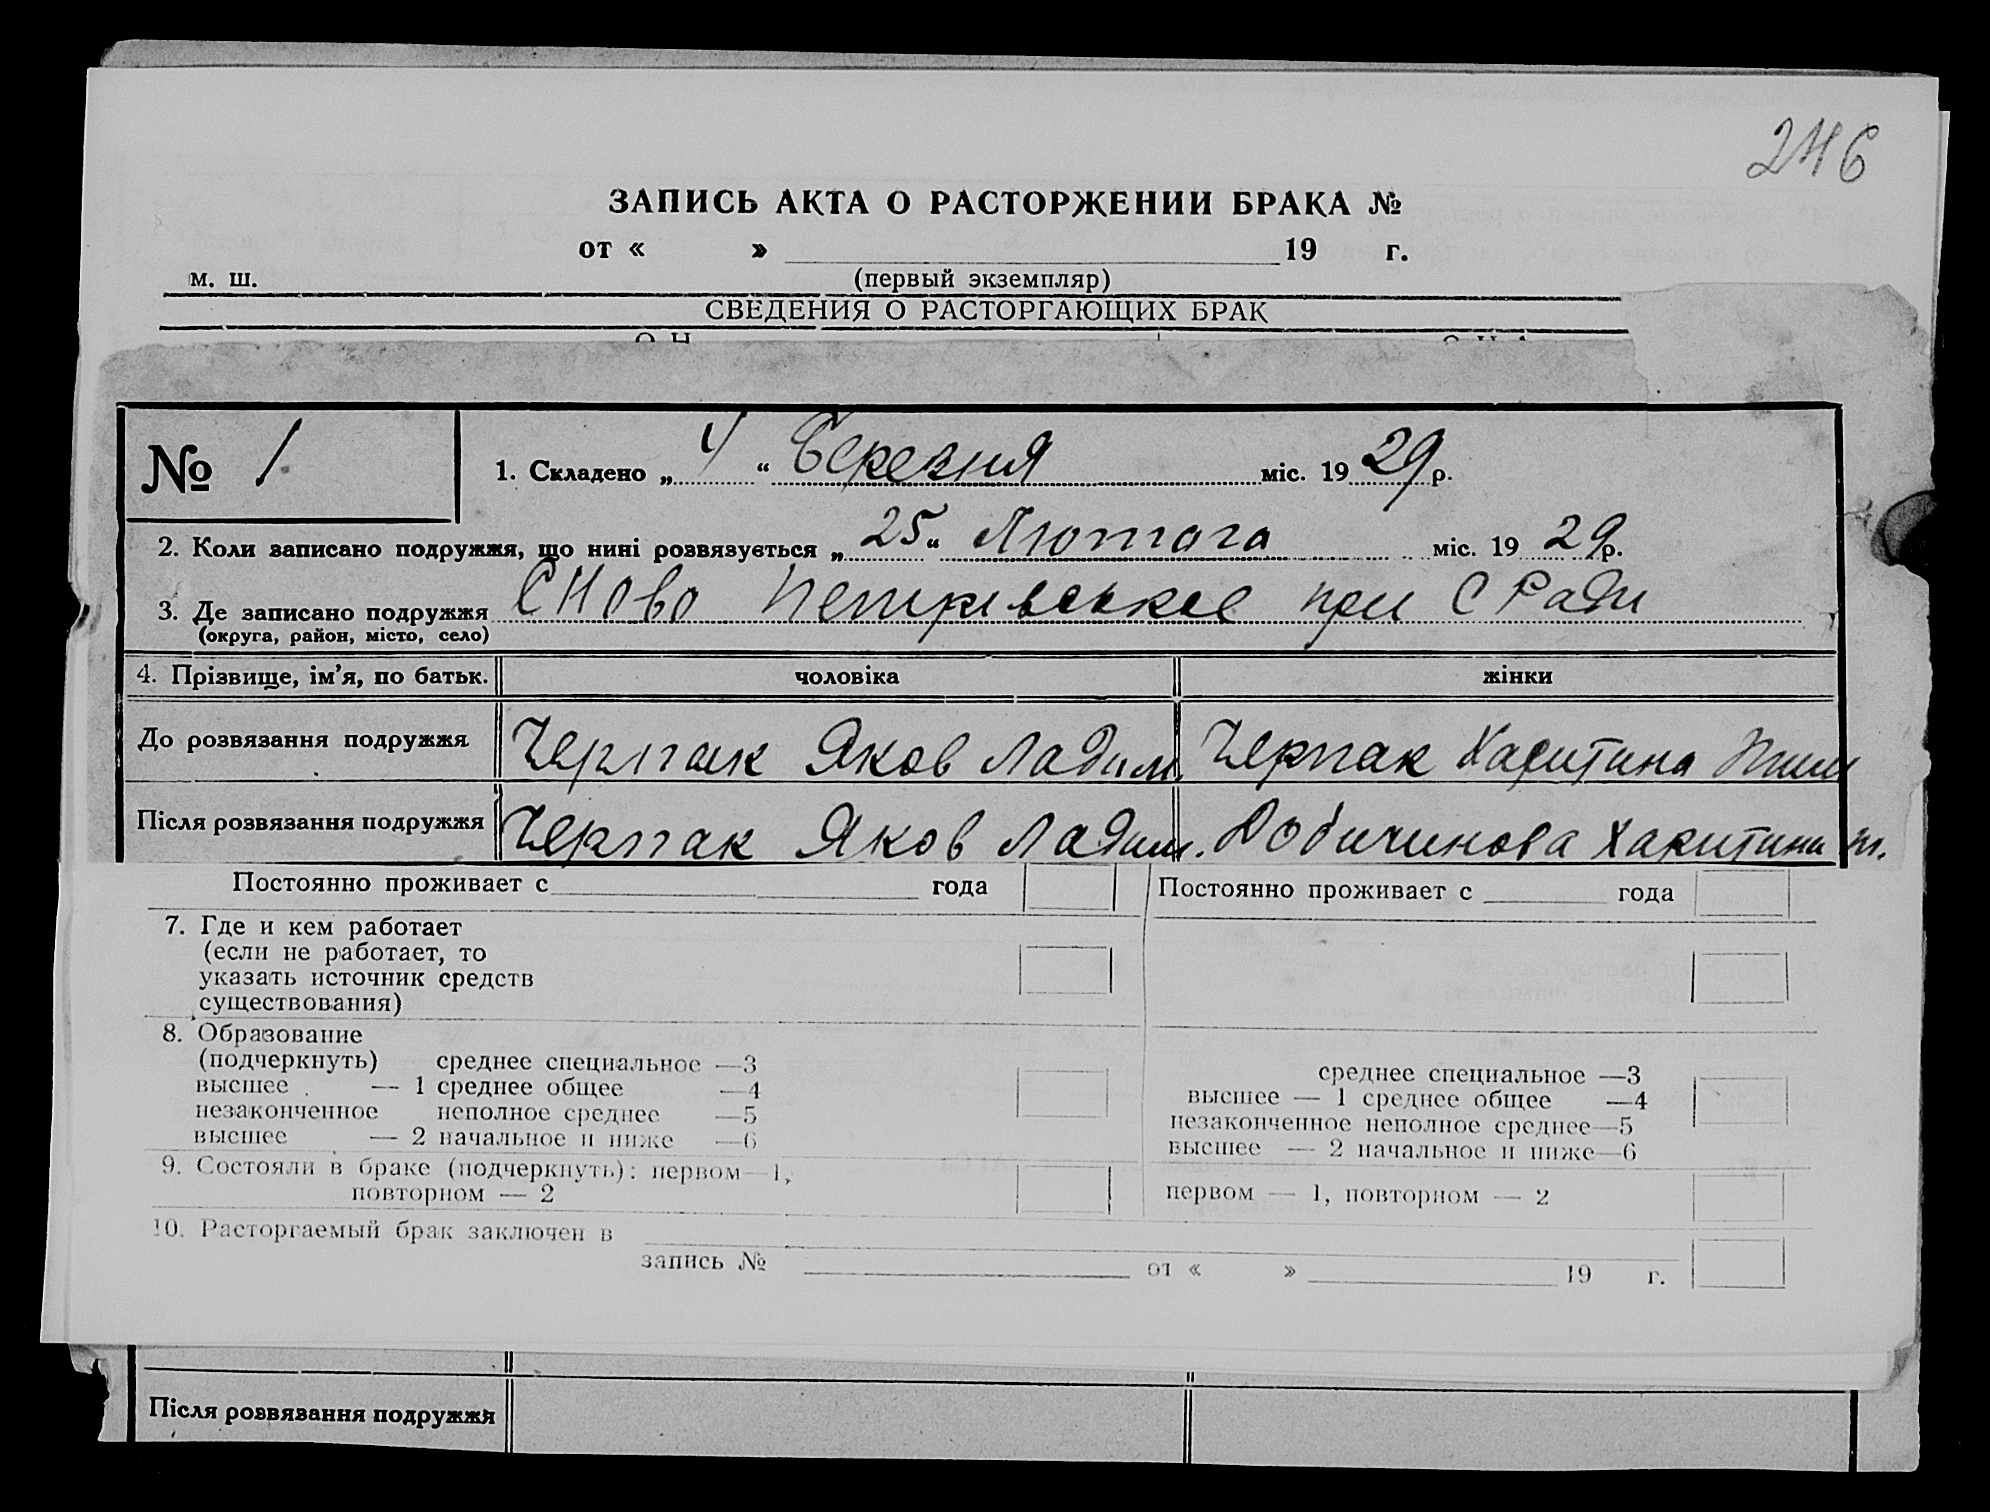 246
ЗАПИСЬ АКТА О РАСТОРЖЕНИИ БРАКА №
от « » 19 г.
м. ш. (первый экземпляр)
СВЕДЕНИЯ О РАСТОРГАЮЩИХ БРАК
№ 1 1. Складено „ 4 “ Березня міс. 19 29 р.
2. Коли записано подружжя, що нині розвязується „ 25 “ Лютога міс. 19 29 р.
3. Де записано подружжя С Ново при С Раді
(округа, район, місто, село)
4. Прізвище, ім'я, по батьк. чоловіка жінки
До розвязання подружжя Черпак Яков Ладим. Черпак Харитина
Після розвязання подружжя Черпак Яков Ладим. Добичинова Харитина
Постоянно проживает с года Постоянно проживает с года
7. Где и кем работает
(если не работает, то
указать источник средств
существования)
8. Образование
(подчеркнуть) среднее специальное —3 среднее специальное —3
высшее — 1 среднее общее —4 высшее — 1 среднее общее —4
незаконченное неполное среднее —5 незаконченное неполное среднее—5
высшее — 2 начальное и ниже —6 высшее — 2 начальное и ниже—6
9. Состояли в браке (подчеркнуть): первом—1,
повторном — 2 первом — 1, повторном — 2
10. Расторгаемый брак заключен в
запись № от « » 19 г.
Після розвязання подружжя